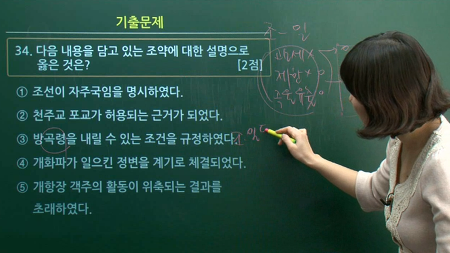 기출문제
34. 다음 내용을 담고 있는 조약에 대한 설명으로
옳은 것은? [2점]
① 조선이 자주국임을 명시하였다.
② 천주교 포교가 허용되는 근거가 되었다.
③ 방곡령을 내릴 수 있는 조건을 규정하였다.
④ 개화파가 일으킨 정변을 계기로 체결되었다.
⑤ 개항장 객주의 활동이 위축되는 결과를
초래하였다.
조-일